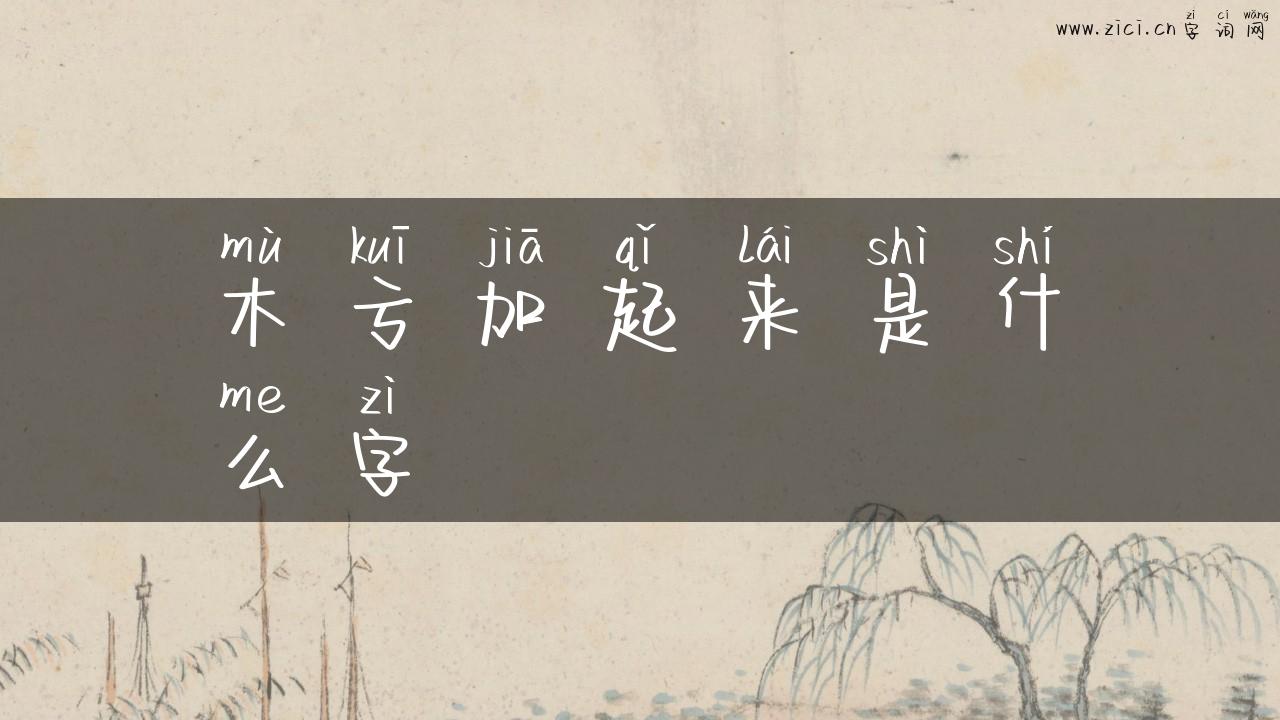 zì cí wǎng
www.zici.cn 字 词 网
mù kuī jiā qǐ lái shì shí
木 亏 加 起 来 是 什
me zì
么 字